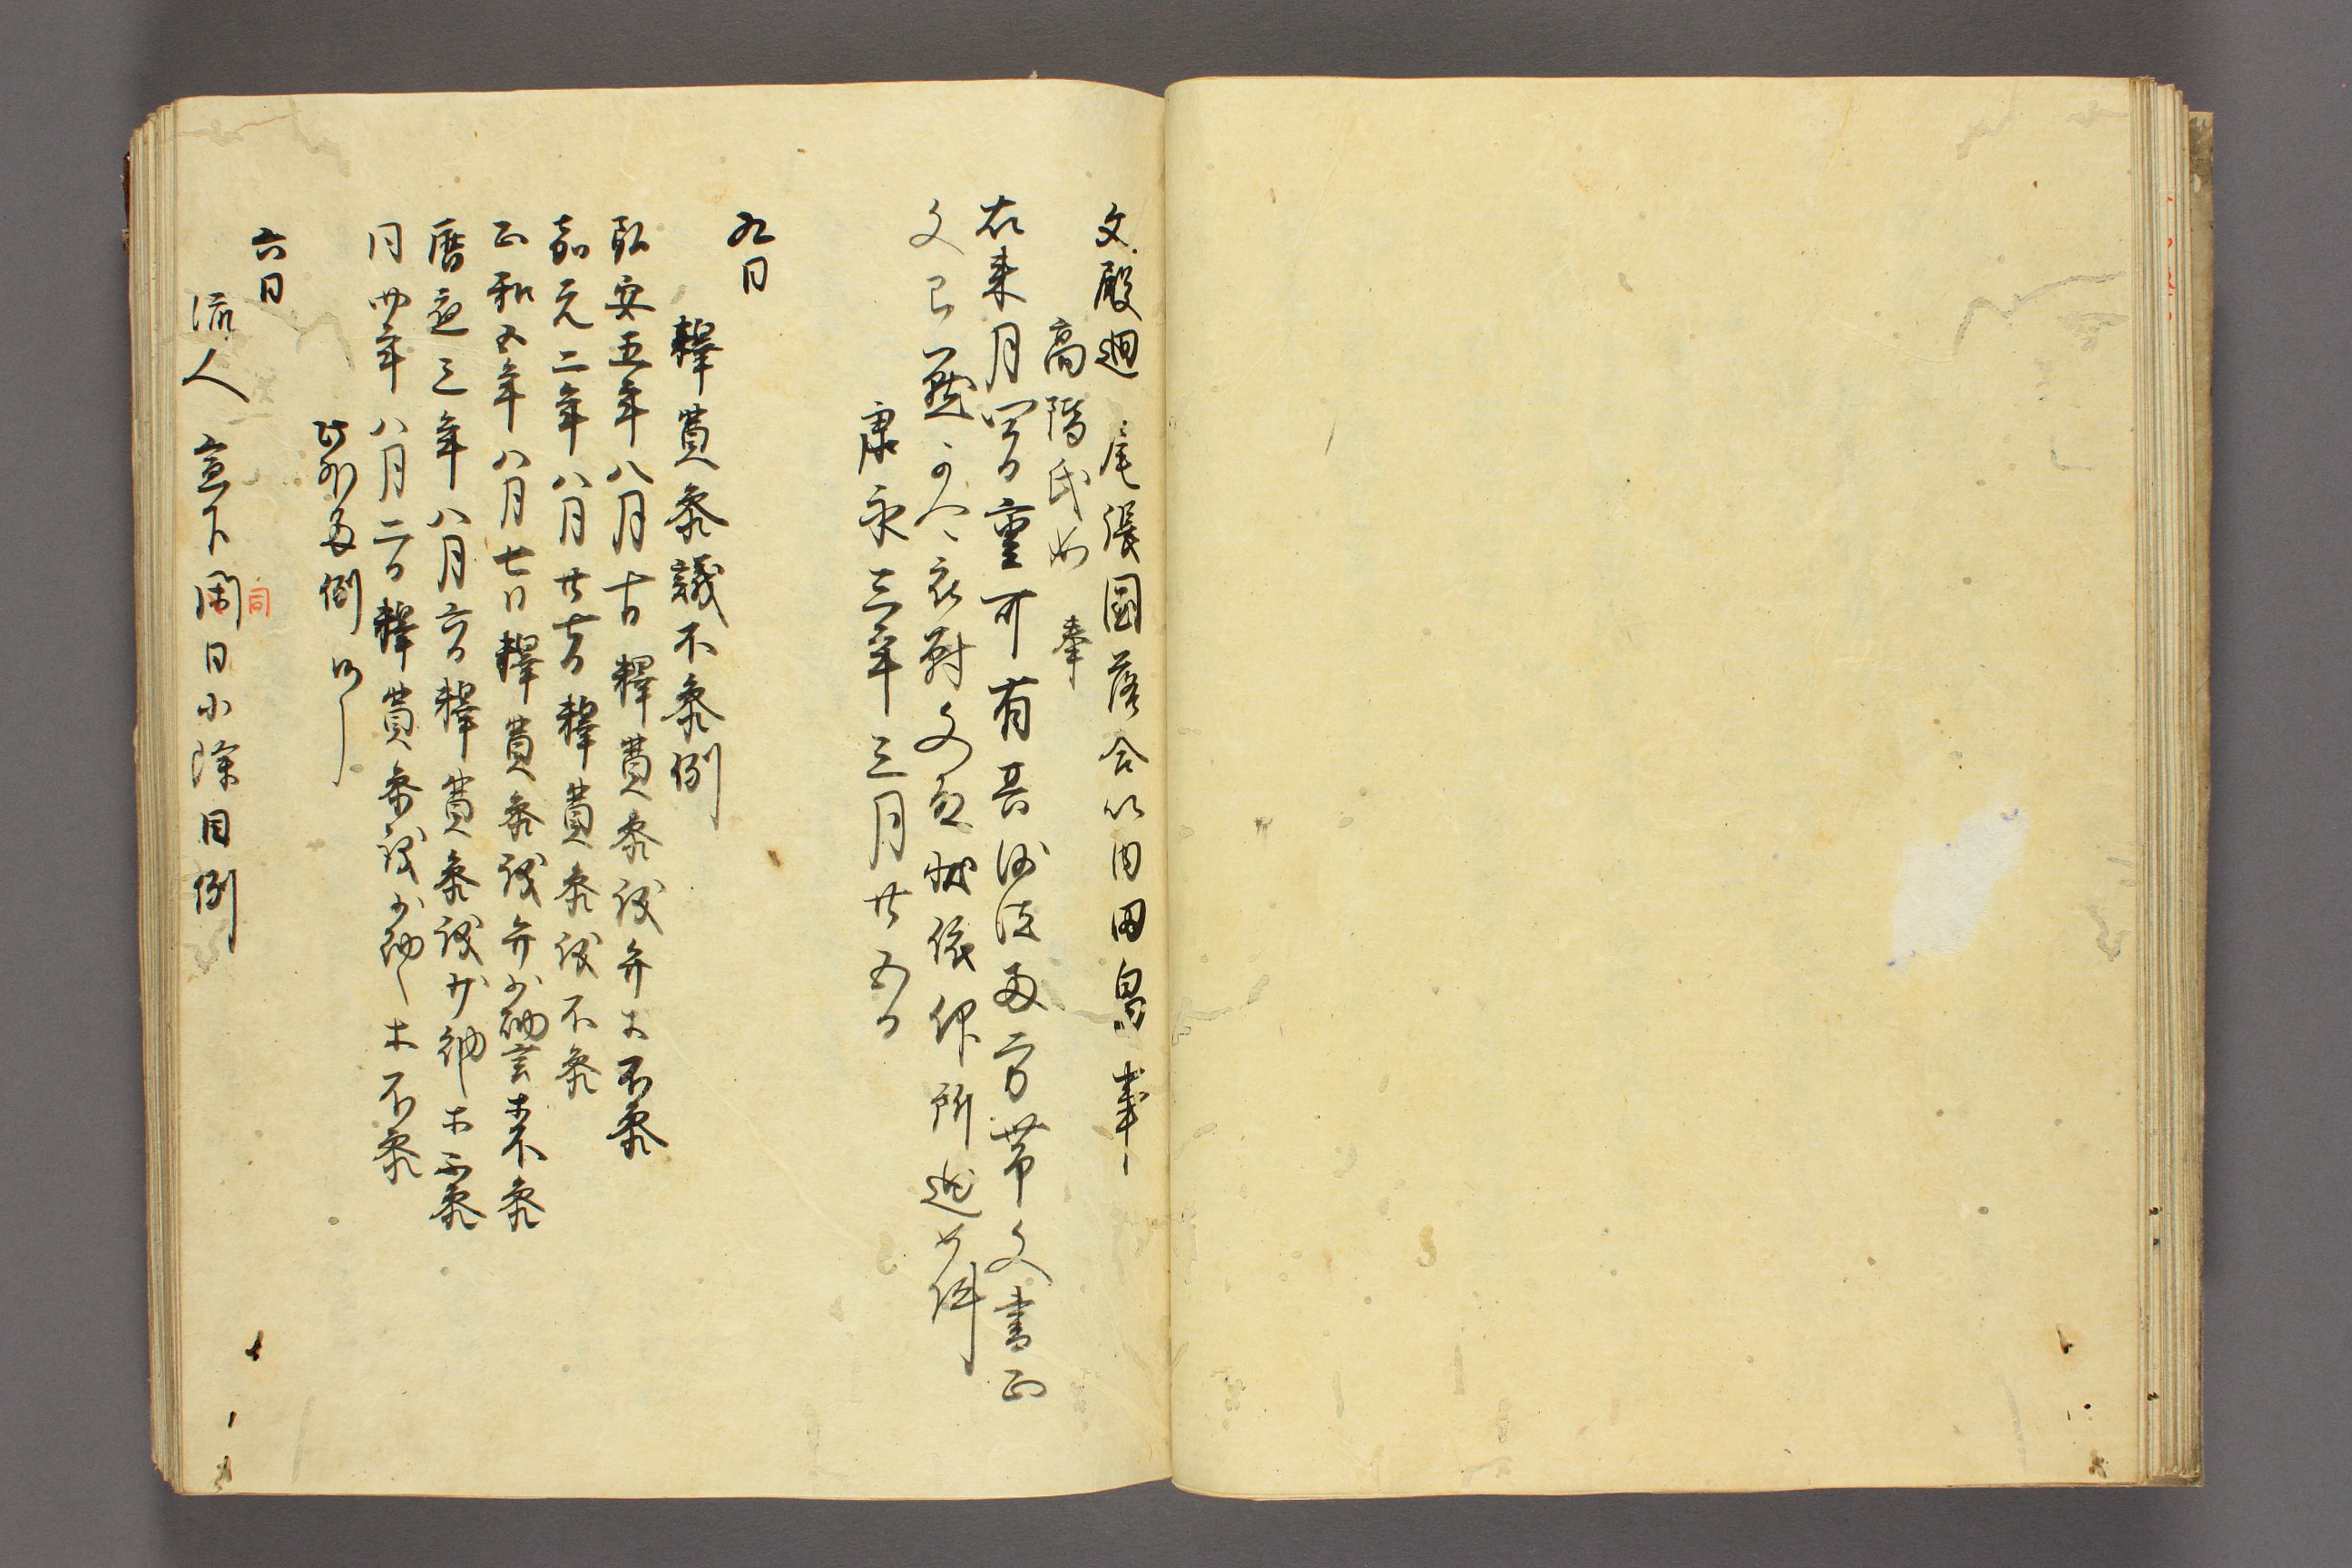 文殿廻 尾張国落合以内田畠事
高階氏女 奉
右来月四日重可有其沙汰両方帯文書正
文已下可令衣対文殿状依仰所廻如件
康永三年三月廿五日
九日
釋奠参議不参例
弘安五年八月十日釋奠参議弁才不参
嘉元二年八月廿七日釋奠参議不参
正和五年八月七日釋奠参議弁少納言才不参
暦応三年八月六日釋奠参議少納才不参
同四年八月二日釋奠参議少納才不参
此外多例
六日
流人宣下同日小除目例
同